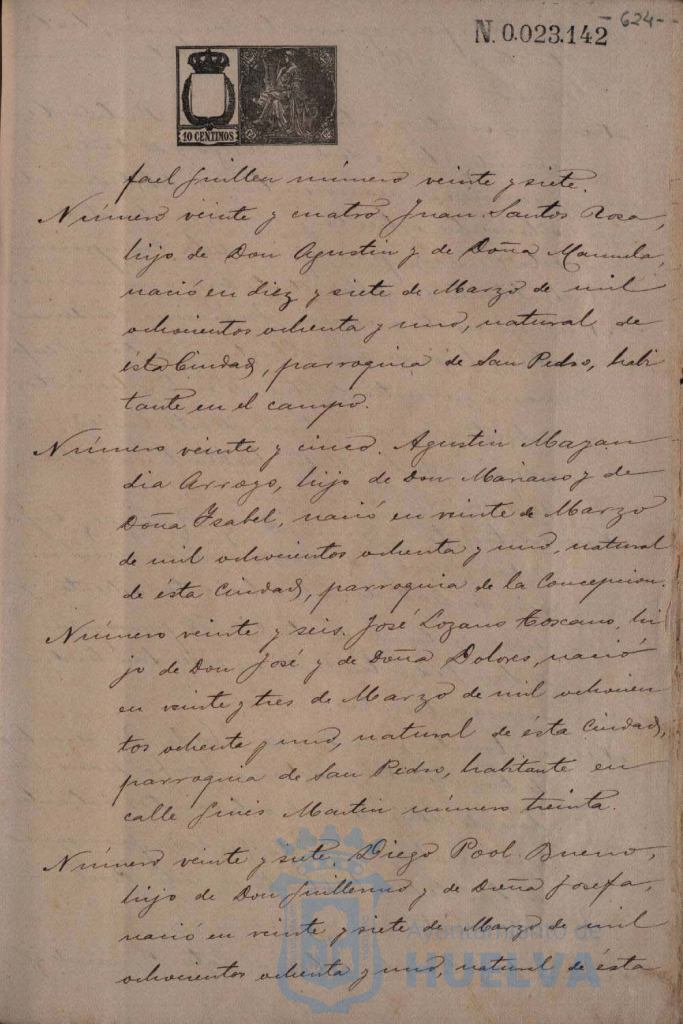 N. 0.023.142
-624-
10 CENTIMOS
fael Guillen número veinte y siete.
Número veinte y cuatro. Juan Santos Rosa,
hijo de Don Agustin y de Doña Manuela,
nació en diez y siete de Marzo de mil
ochocientos ochenta y uno, natural de
ésta Ciudad, parroquia de San Pedro, habi
tante en el campo.
Número veinte y cinco. Agustin Mazan
dia Arroyo, hijo de Don Mariano y de
Doña Isabel, nació en veinte de Marzo
de mil ochocientos ochenta y uno, natural
de ésta Ciudad, parroquia de la Concepcion.
Número veinte y seis. José Lozano Toscano, hi
jo de Don José y de Doña Dolores, nació
en veinte y tres de Marzo de mil ochocien
tos ochenta y uno, natural de ésta Ciudad,
parroquia de San Pedro, habitante en
calle Ginés Martin número treinta.
Número veinte y siete. Diego Pool Bueno,
hijo de Don Guillermo y de Doña Josefa,
nació en veinte y siete de Marzo de mil
ochocientos ochenta y uno, natural de ésta
Ayuntamiento de
HUELVA